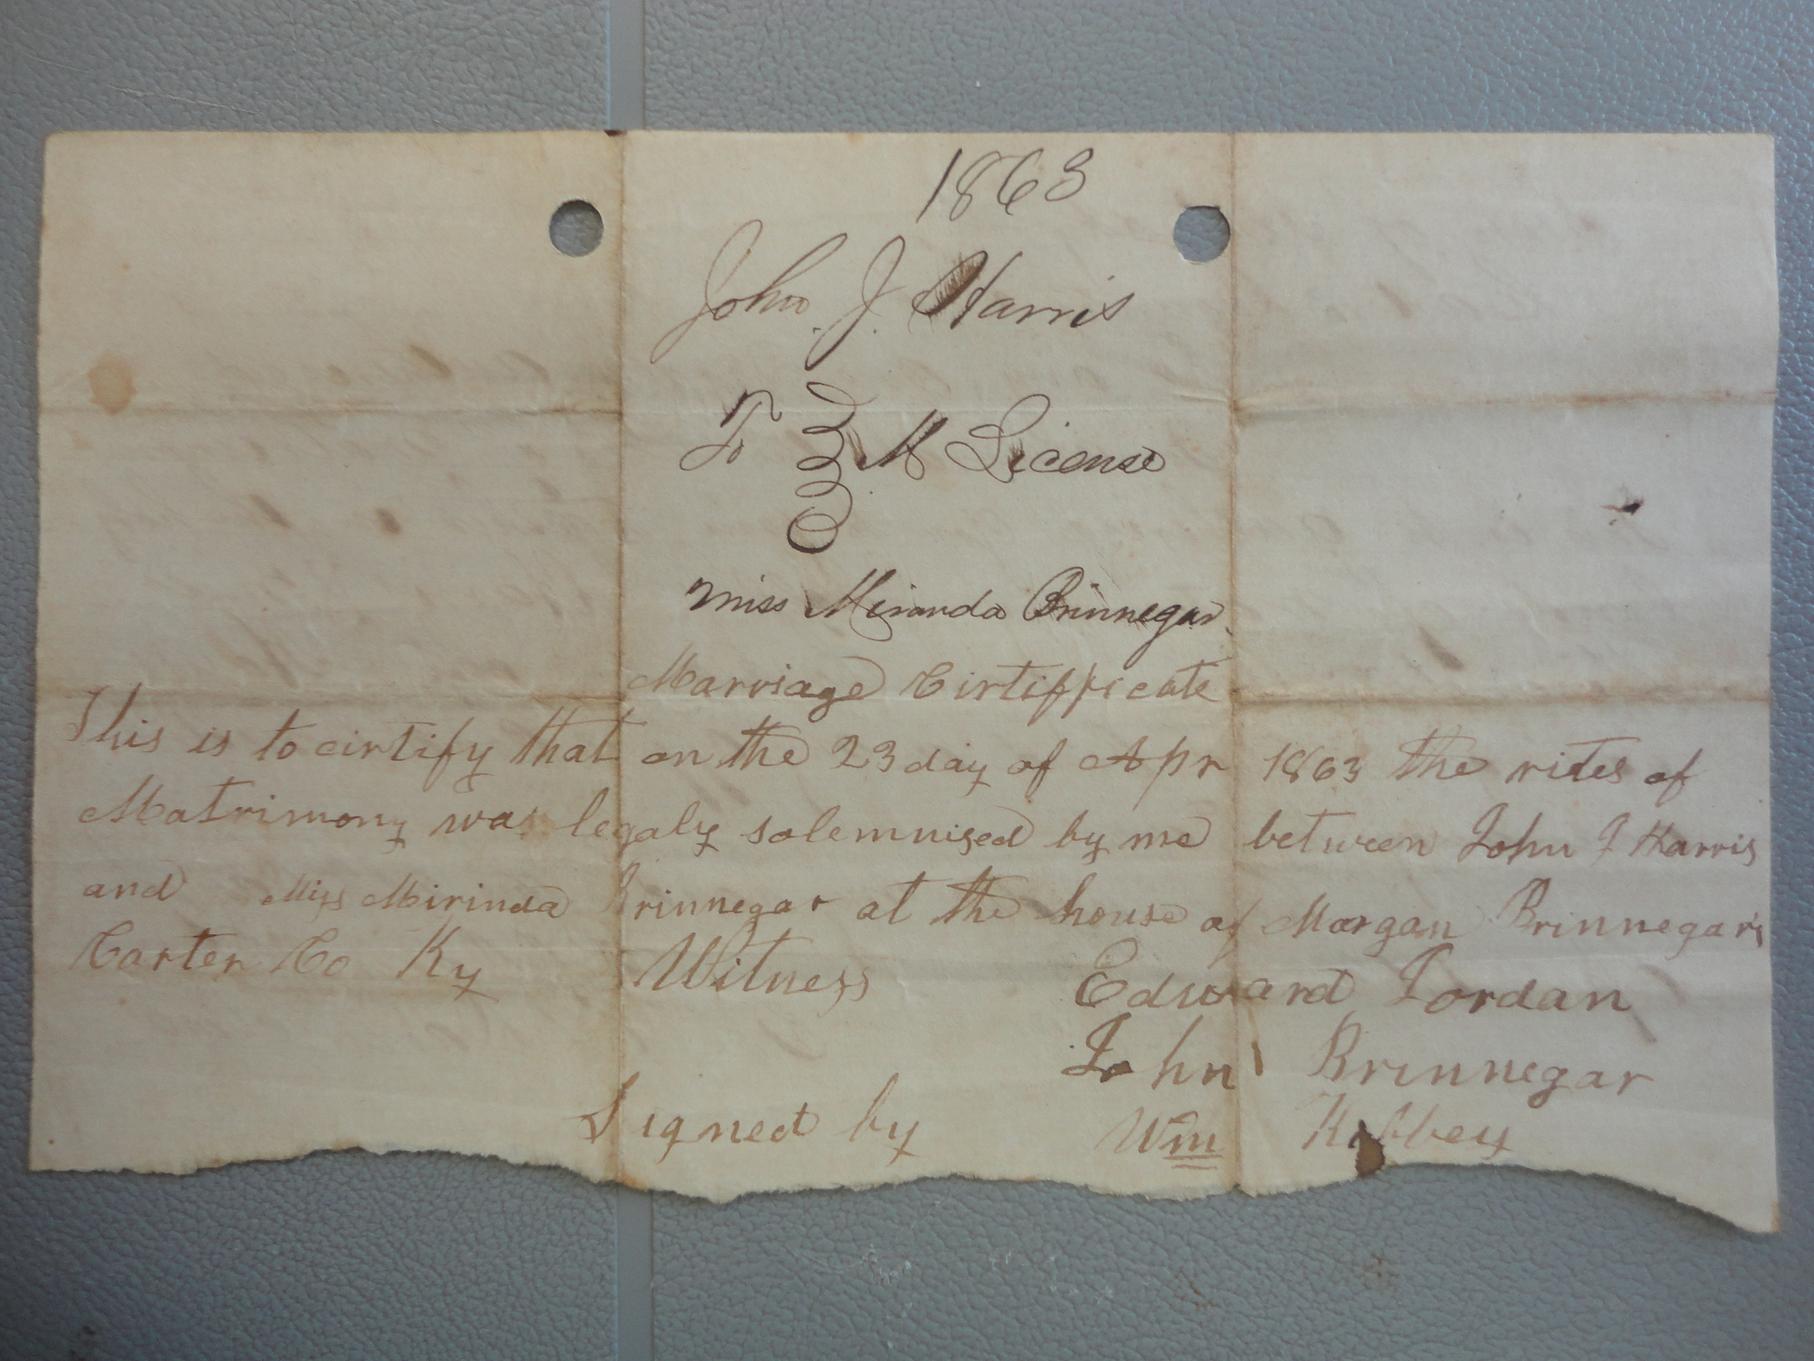 1863
John. J. Harris
To M License
Miss Miranda Brinnegar.
Marriage Cirtifficate
This is to cirtify that on the 23 day of Apr 1863 the rites of
Matrimony was legaly solemnised by me between John J Harris
and Miss Mirinda Brinnegar at the house of Morgan Brinnegars
Carter Co Ky Witness Edward Jordan
John Brinnegar
Signed by Wm Kibbey